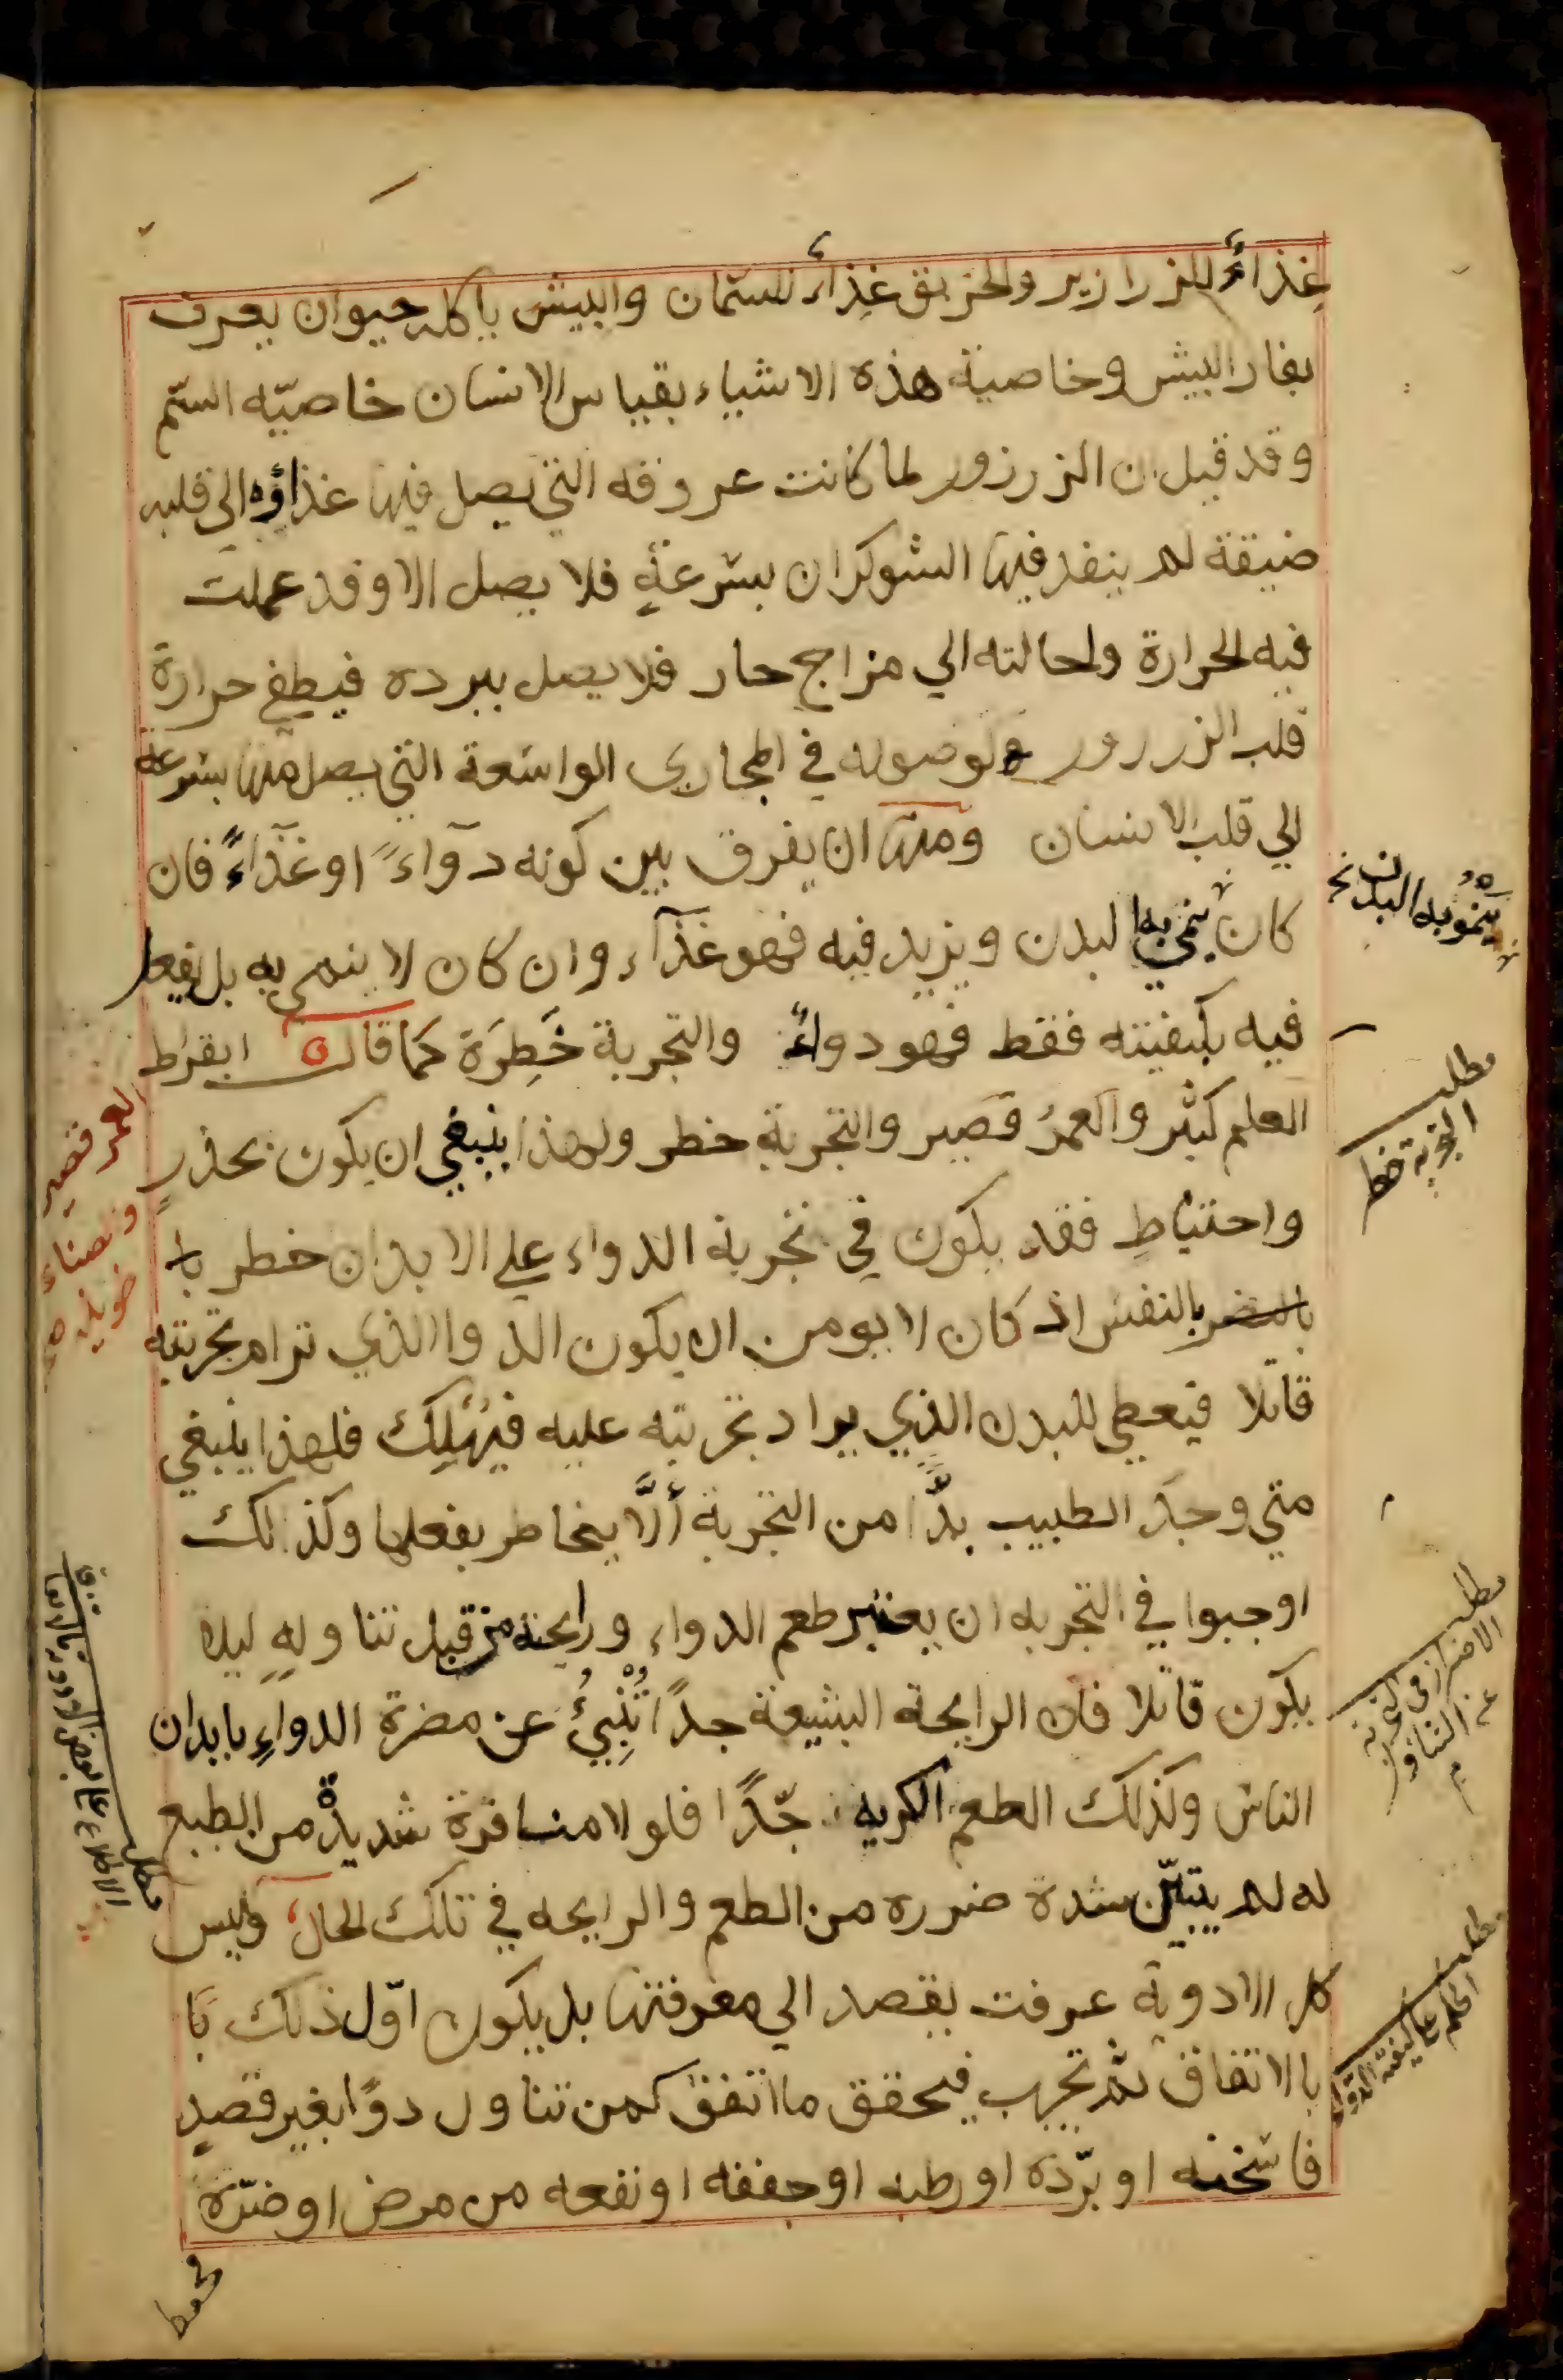 غِذاءً للزرازير والخربق غِذاءً للسّمان والبيش ياكله حيوان يعرف
بفار البيش وخاصية هذه الاشياء بقياس الانسان خاصيّه السّم
وقد قيل ان الزرزور لما كانت عروقه التي يصل فيها غذاؤه الي قلبه
ضيقة لم ينفد فيها الشوكران بسرعةٍ فلا يصل الا وقد عملت
فيه الحرارة واحالته الي مزاج حار فلا يصل ببرده فيطفي حرارة
قلب الزرزور ولوصوله في المجاري الواسعة التي يصل منها بسرعة
الي قلب الانسان ومنها ان يفرق بين كونه دوآءً او غذآءً فان
كان ينمي به البدن ويزيد فيه فهو غذآء وان كان لا ينمي به بل يفعل
فيه بكيفيته فقط فهو دواءً والتجربة خَطِرَة كما قال ابقراط
العلم كثير والعمرُ قصير والتجربة خطر ولهذا ينبغي ان يكون بحذرٍ
واحتياطٍ فقد يكون في تجربة الدواء علي الابدان خطر با
بالنفس اذ كان لا يومن ان يكون الدوا الذي ترام تجربته
قاتلا فيعطي للبدن الذي يراد تجربته عليه فيُهلِك فلهذا ينبغي
متي وجدَ الطبيب بدًّا من التجربة ألَّا يخاطر بفعلها وكذلك
اوجبوا في التجربه ان يعتبر طعم الدواء ورايحته من قبل تناولهِ ليلا
يكون قاتلا فان الرايحة البشيعة جدًا تُنْبِئُ عن مضرة الدواءِ بابدان
الناس وكذلك الطعم الكريه جّدًا فلولا منافرة شديدة من الطبع
له لم يتبيّن شدة ضرره من الطعم والرايحه في تلك الحال وليس
كل الادوية عرفت بقصد الي معرفتها بل يكون اوّل ذلك بَا
بالاتفاق ثم تجرب فيحقق ما اتفق كمن تناول دوًا بغير قصدٍ
فاسَخنه او برّده او رطبه او جففه او نفعه من مرض او ضرّة
يَنمُو به البدن نخ
مطلب
التجربة خطر
مطلب
الاحتراز في التجربة
عن التناول
مطلب
الحكم علي كيفية الدواء
العمر قصير
مطلب
الاطلاع علي بعض الادوية بالاتفاق